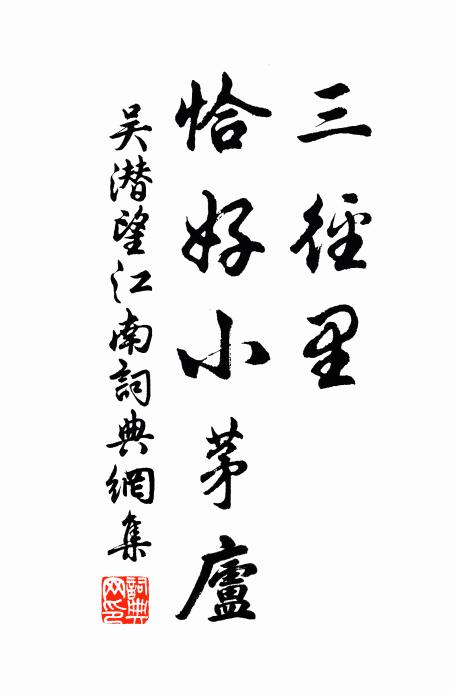 三徑里
恰好小茅廬
吴潛望江南詞典網集
詞典网印